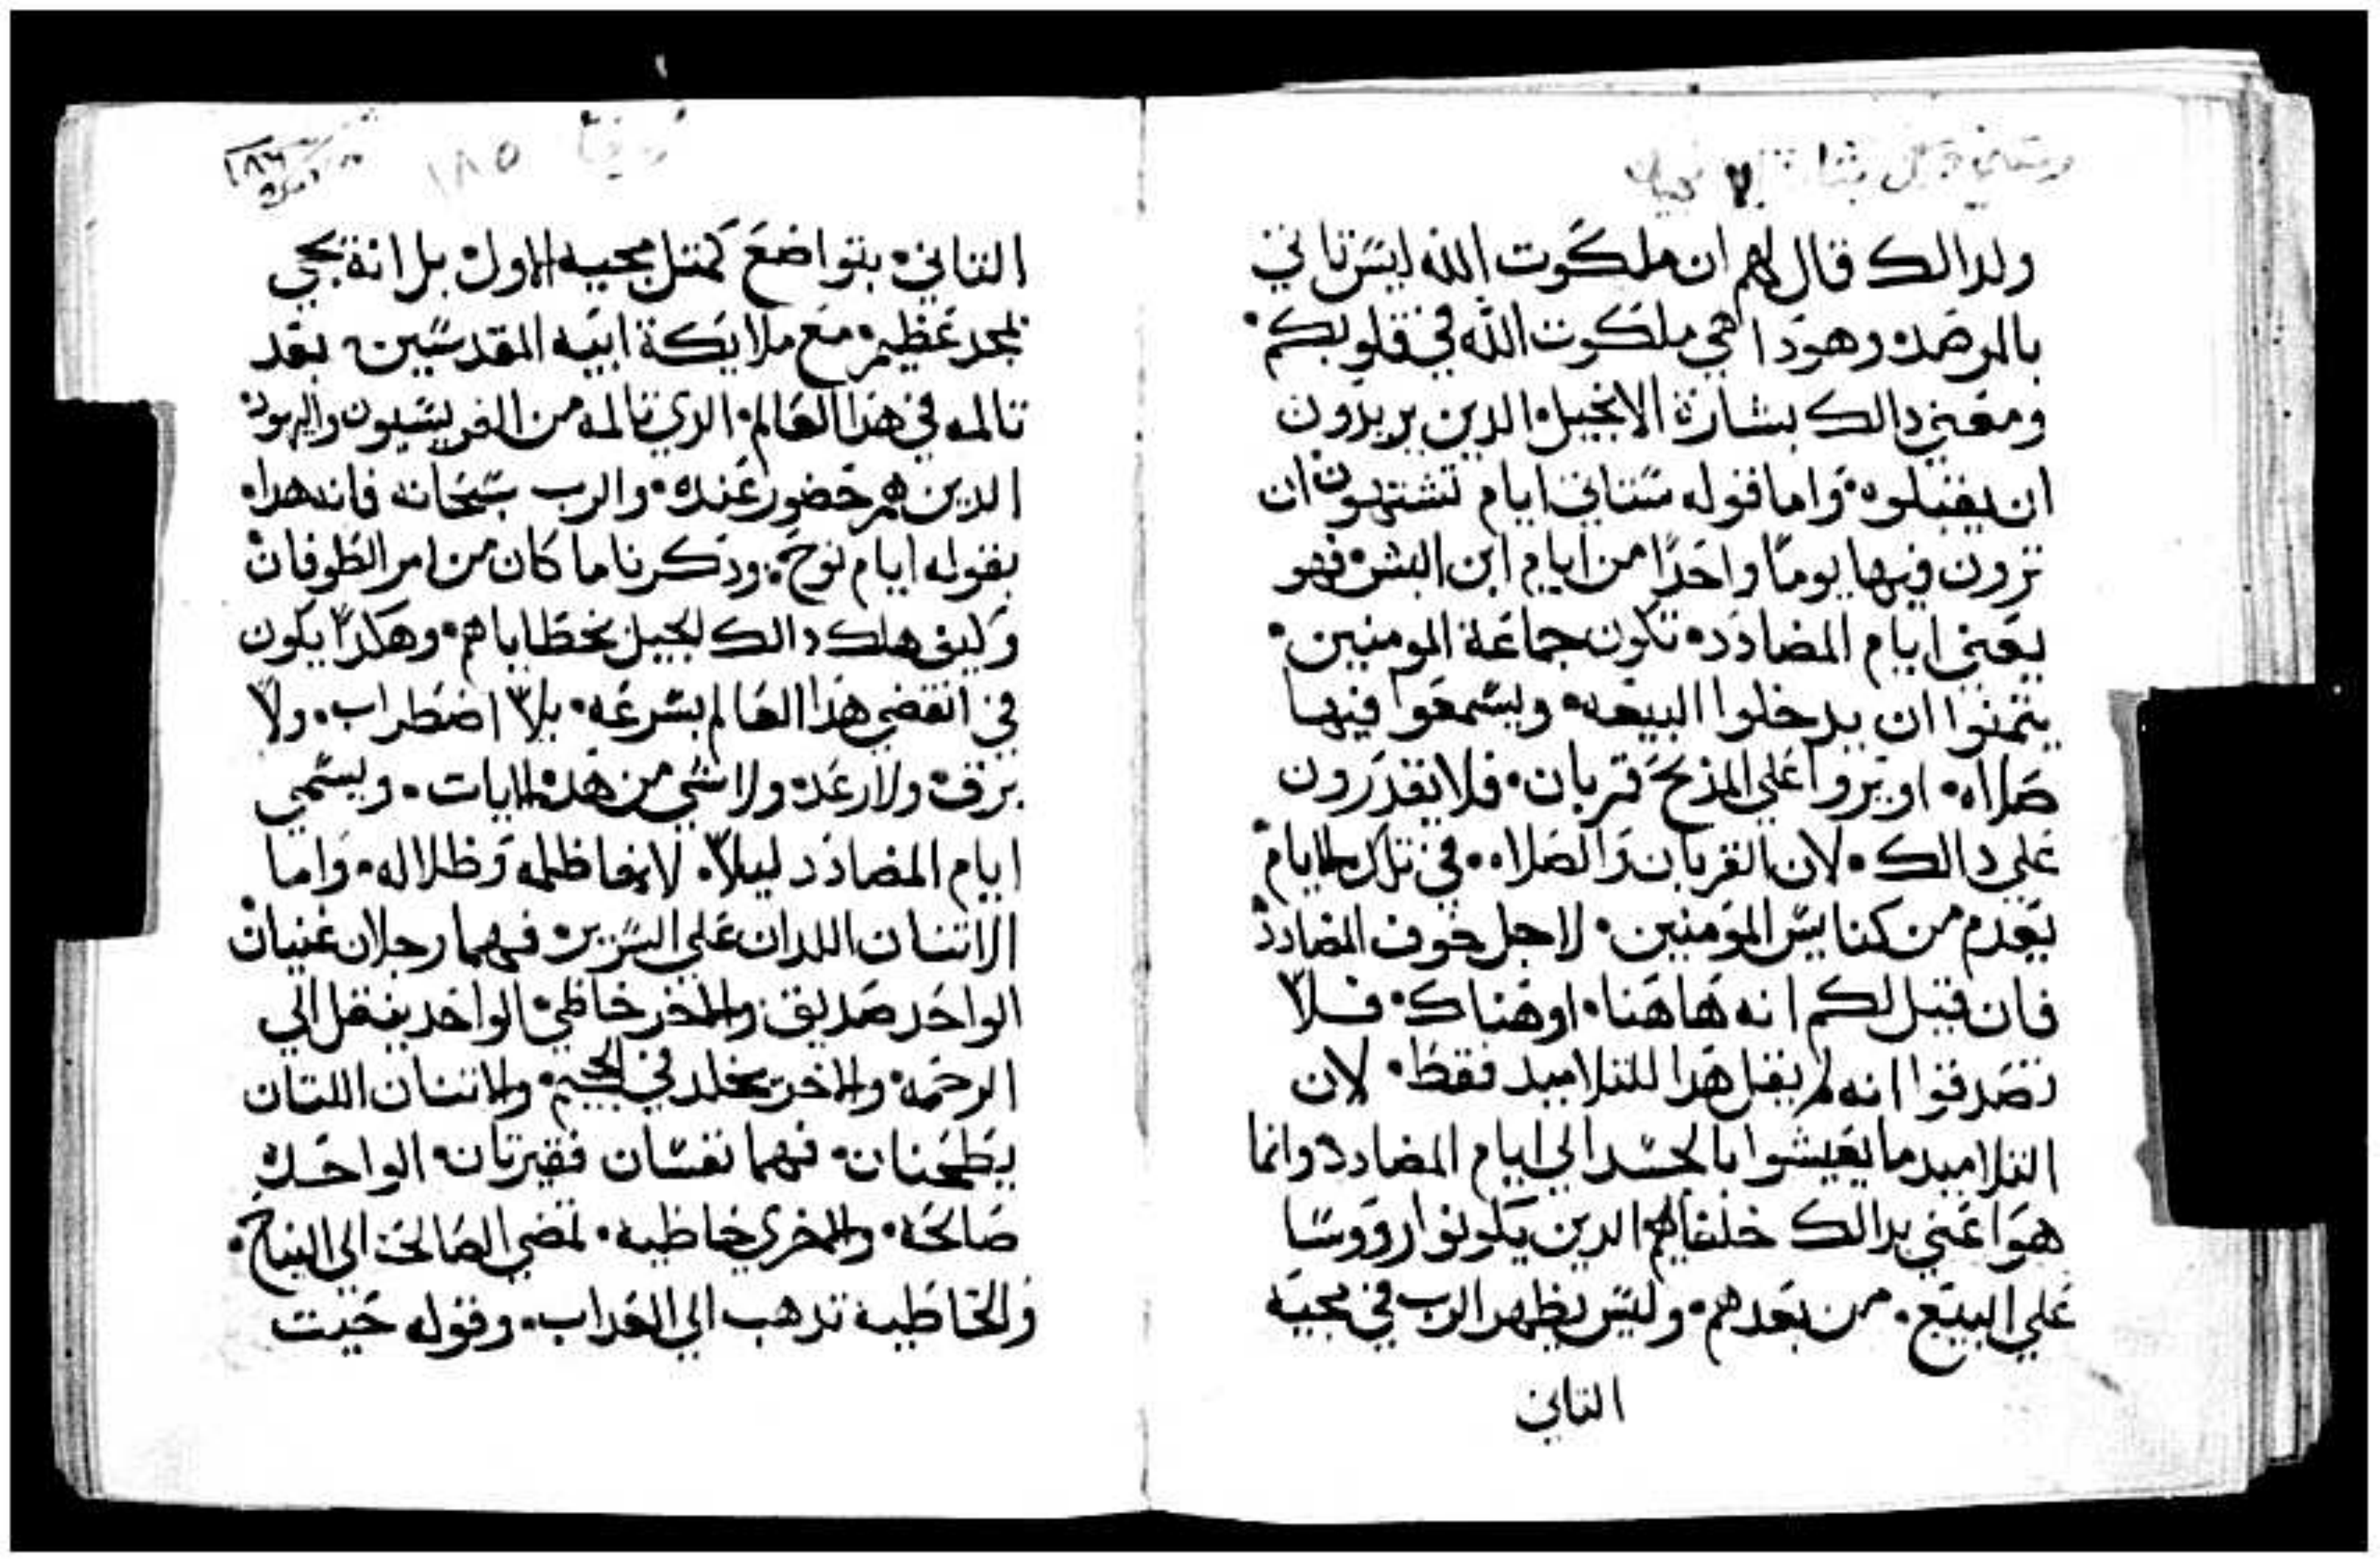 ولدالك قال لهم ان ملكوت الله ليس تاتي
بالمرصد وهودا هي ملكوت الله في قلوبكم
ومعني دالك بشارة الانجيل الدين يريدون
ان يقبلوه واما قوله ستاتي ايام تشتهون ان
ترون فيها يومًا واحدًا من ايام ابن البشر فهو
يعني ايام المضادد تكون جماعة المومنين
يتمنوا ان يدخلوا البيعه ويسمعوا فيها
صلاه او يروا علي المذبح قربان فلا يقدرون
علي دالك لان القربان والصلاه في تلك الايام
يعدم من كنايس المومنين لاجل خوف المضادد
فان قيل لكم انه هاهنا او هناك فلا
تصدقوا انه لم يقل هدا للتلاميد فقط لان
التلاميد ما يعيشوا بالجسد الي ايام المضادد وانما
هوا عني بدالك خلفاهم الدين يكونوا رووسا
علي البيع من بعدهم وليس يظهر الرب في مجيه
التاني
١٨٥
١٨٦
التاني بتواضع كمتل مجيه الاول بل انه يجي
بمجد عظيم مع ملايكة ابيه المقدسين بعد
تالمه في هدا العالم الدي تالمه من الفريسيون واليهود
الدين هم حضور عنده والرب سبحانه فانه هدا
بقوله ايام نوح ودكرنا ما كان من امر الطوفان
وكيف هلك دالك الجيل بخطاياهم وهكدا يكون
في انقضي هدا العالم بسرعه بلا اضطراب ولا
برق ولا رعد ولا شي من هده الايات ويسمي
ايام المضادد ليلا لانها ظلمه وظلاله واما
الاتنان اللدان علي السرير فهما رجلان غنيان
الواحد صديق والاخر خاطي الواحد ينقل الي
الرحمه والاخر يخلد في الجحيم والاتنتان اللتان
يطحنان فهما نفسان فقيرتان الواحده
صالحه والاخري خاطيه تمضي الصالحه الي النياح
والخاطيه تدهب الي العداب وقوله حيت